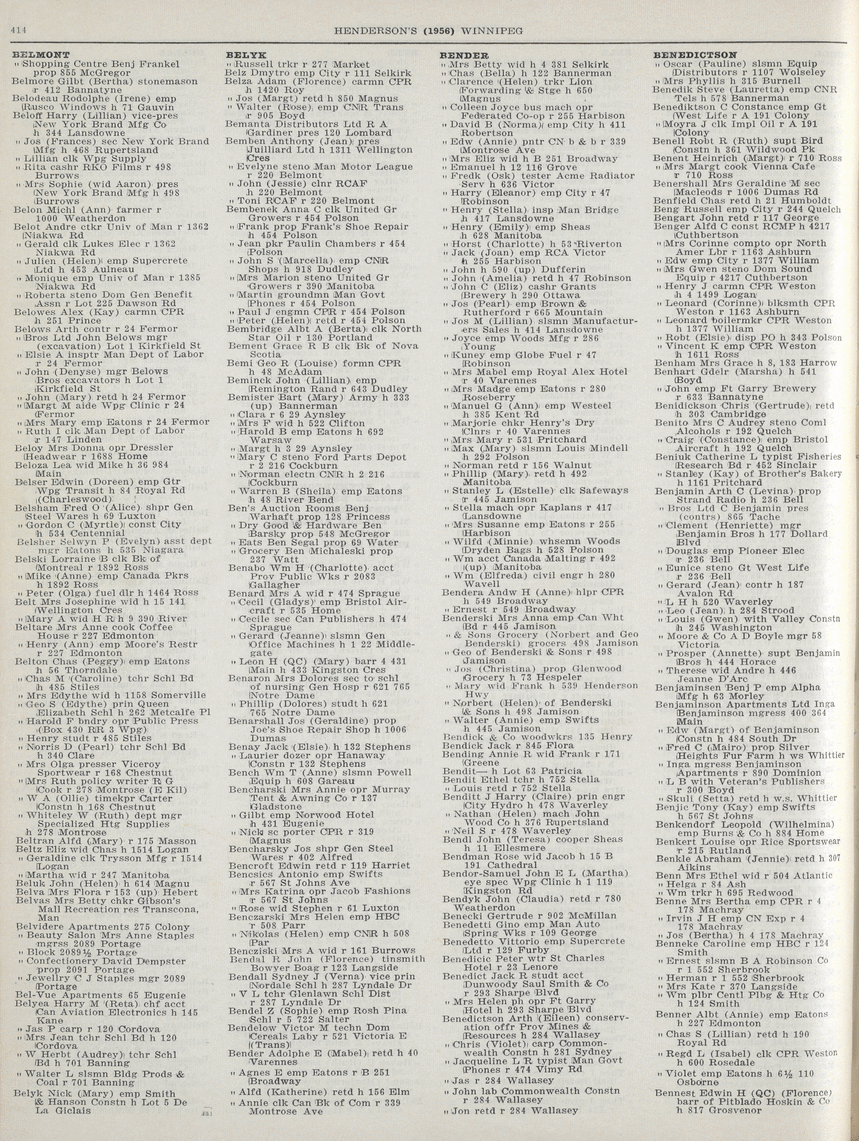 414
HENDERSON'S (1956) WINNIPEG
BELMONT
" Shopping Centre Benj Frankel
prop 855 McGregor
Belmore Gilbt (Bertha) stonemason
r 412 Bannatyne
Belodeau Rodolphe (Irene) emp
Rusco Windows h 71 Gauvin
Beloff Harry (Lillian) vice-pres
New York Brand Mfg Co
h 344 Lansdowne
" Jos (Frances) sec New York Brand
Mfg h 468 Rupertsland
" Lillian clk Wpg Supply
" Rita cashr RKO Films r 498
Burrows
" Mrs Sophie (wid Aaron) pres
New York Brand Mfg h 498
Burrows
Belon Michl (Ann) farmer r
1000 Weatherdon
Belot Andre ctkr Univ of Man r 1362
Niakwa Rd
" Gerald clk Lukes Elec r 1362
Niakwa Rd
" Julien (Helen) emp Supercrete
Ltd h 453 Aulneau
" Monique emp Univ of Man r 1385
Niakwa Rd
" Roberta steno Dom Gen Benefit
Assn r Lot 225 Dawson Rd
Belowes Alex (Kay) carmn CPR
h 251 Prince
Belows Arth contr r 24 Fermor
" Bros Ltd John Belows mgr
(excavation) Lot 1 Kirkfield St
" Elsie A insptr Man Dept of Labor
r 24 Fermor
" John (Denyse) mgr Belows
Bros excavators h Lot 1
Kirkfield St
" John (Mary) retd h 24 Fermor
" Margt M aide Wpg Clinic r 24
Fermor
" Mrs Mary emp Eatons r 24 Fermor
" Ruth I clk Man Dept of Labor
r 147 Linden
Beloy Mrs Donna opr Dressler
Headwear r 1688 Home
Beloza Lea wid Mike h 36 984
Main
Belser Edwin (Doreen) emp Gtr
Wpg Transit h 84 Royal Rd
(Charleswood)
Belsham Fred O (Alice) shpr Gen
Steel Wares h 69 Luxton
" Gordon C (Myrtle) const City
h 534 Centennial
Belsher Selwyn P (Evelyn) asst dept
mgr Eatons h 535 Niagara
Belski Lorraine B clk Bk of
Montreal r 1892 Ross
" Mike (Anne) emp Canada Pkrs
h 1892 Ross
" Peter (Olga) fuel dlr h 1464 Ross
Belt Mrs Josephine wid h 15 141
Wellington Cres
" Mary A wid H R h 9 390 River
Beltare Mrs Anne cook Coffee
House r 227 Edmonton
" Henry (Ann) emp Moore's Restr
r 227 Edmonton
Belton Chas (Peggy) emp Eatons
h 56 Thorndale
" Chas M (Caroline) tchr Schl Bd
h 485 Stiles
" Mrs Edythe wid h 1158 Somerville
" Geo S (Edythe) prin Queen
Elizabeth Schl h 262 Metcalfe Pl
" Harold F bndry opr Public Press
(Box 430 RR 3 Wpg)
" Henry studt r 485 Stiles
" Norris D (Pearl) tchr Schl Bd
h 340 Clare
" Mrs Olga presser Viceroy
Sportwear r 168 Chestnut
" Mrs Ruth policy writer R G
Cook r 278 Montrose (E Kil)
" W A (Ollie) timekpr Carter
Constn h 168 Chestnut
" Whiteley W (Ruth) dept mgr
Specialized Htg Supplies
h 278 Montrose
Beltran Alfd (Mary) r 175 Masson
Beltz Eliz wid Chas h 1514 Logan
" Geraldine clk Trysson Mfg r 1514
Logan
" Martha wid r 247 Manitoba
Beluk John (Helen) h 614 Magnu
Belva Mrs Flora r 153 (up) Hebert
Belvas Mrs Betty chkr Gibson's
Mall Recreation res Transcona,
Man
Belvidere Apartments 275 Colony
" Beauty Salon Mrs Anne Staples
mgrss 2089 Portage
" Block 2089½ Portage
" Confectionery David Dempster
prop 2091 Portage
" Jewellry C J Staples mgr 2089
Portage
Bel-Vue Apartments 65 Eugenie
Belyea Harry M (Reta) chf acct
Can Aviation Electronics h 145
Kane
" Jas P carp r 120 Cordova
" Mrs Jean tchr Schl Bd h 120
Cordova
" W Herbt (Audrey) tchr Schl
Bd h 701 Banning
" Walter L slsmn Bldg Prods &
Coal r 701 Banning
Belyk Nick (Mary) emp Smith
& Hanson Constn h Lot 5 De
La Giclais
BELYK
" Russell trkr r 277 Market
Belz Dmytro emp City r 111 Selkirk
Belza Adam (Florence) carmn CPR
h 1420 Roy
" Jos (Margt) retd h 850 Magnus
" Walter (Rose) emp CNR Trans
r 905 Boyd
Bemanta Distributors Ltd R A
Gardiner pres 120 Lombard
Bemben Anthony (Jean) pres
Juilliard Ltd h 1311 Wellington
Cres
" Evelyne steno Man Motor League
r 220 Belmont
" John (Jessie) clnr RCAF
h 220 Belmont
" Toni RCAF r 220 Belmont
Bembenek Anna C clk United Gr
Growers r 454 Polson
" Frank prop Frank's Shoe Repair
h 454 Polson
" Jean pkr Paulin Chambers r 454
Polson
" John S (Marcella) emp CNR
Shops h 918 Dudley
" Mrs Marion steno United Gr
Growers r 390 Manitoba
" Martin groundmn Man Govt
Phones r 454 Polson
" Paul J engmn CPR r 454 Polson
" Peter (Helen) retd r 454 Polson
Bembridge Albt A (Berta) clk North
Star Oil r 130 Portland
Bement Grace R B clk Bk of Nova
Scotia
Bemi Geo R (Louise) formn CPR
h 48 McAdam
Beminck John (Lillian) emp
Remington Rand r 643 Dudley
Bemister Bart (Mary) Army h 333
(up) Bannerman
" Clara r 6 29 Aynsley
" Mrs F wid h 522 Clifton
" Harold B emp Eatons h 692
Warsaw
" Margt h 3 29 Aynsley
" Mary C steno Ford Parts Depot
r 2 216 Cockburn
" Norman electn CNR h 2 216
Cockburn
" Warren B (Sheila) emp Eatons
h 48 River Bend
Ben's Auction Rooms Benj
Warhaft prop 128 Princess
" Dry Good & Hardware Ben
Barsky prop 548 McGregor
" Eats Ben Segal prop 69 Water
" Grocery Ben Michaleski prop
237 Watt
Benabo Wm H (Charlotte) acct
Prov Public Wks r 2083
Gallagher
Benard Mrs A wid r 474 Sprague
" Cecil (Gladys) emp Bristol Air-
craft r 535 Home
" Cecile sec Can Publishers h 474
Sprague
" Gerard (Jeanne) slsmn Gen
Office Machines h 1 22 Middle-
gate
" Leon H (QC) (Mary) barr 4 431
Main h 433 Kingston Cres
Benaron Mrs Dolores sec to schl
of nursing Gen Hosp r 621 765
Notre Dame
" Phillip (Dolores) studt h 621
765 Notre Dame
Benarshall Jos (Geraldine) prop
Joe's Shoe Repair Shop h 1006
Dumas
Benay Jack (Elsie) h 132 Stephens
" Laurier dozer opr Hanaway
Constn r 132 Stephens
Bench Wm T (Anne) slsmn Powell
Equip h 608 Gareau
Bencharski Mrs Annie opr Murray
Tent & Awning Co r 137
Gladstone
" Gilbt emp Norwood Hotel
h 431 Eugenie
" Nick sc porter CPR r 319
Magnus
Bencharsky Jos shpr Gen Steel
Wares r 402 Alfred
Bencroft Edwin retd r 119 Harriet
Bencsics Antonio emp Swifts
r 567 St Johns Ave
" Mrs Katrina opr Jacob Fashions
r 567 St Johns
" Rose wid Stephen r 61 Luxton
Benczarski Mrs Helen emp HBC
r 508 Parr
" Nikolas (Helen) emp CNR h 508
Par
Bencziski Mrs A wid r 161 Burrows
Bendal R John (Florence) tinsmith
Bowyer Boag r 123 Langside
Bendall Sydney J (Verna) vice prin
Nordale Schl h 287 Lyndale Dr
" V L tchr Glenlawn Schl Dist
r 287 Lyndale Dr
Bendel Z (Sophie) emp Rosh Pina
Schl r 5 722 Salter
Bendelow Victor M techn Dom
Cereals Laby r 521 Victoria E
(Trans)
Bender Adolphe E (Mabel) retd h 40
Varennes
" Agnes E emp Eatons r B 251
Broadway
" Alfd (Katherine) retd h 156 Elm
" Annie clk Can Bk of Com r 339
Montrose Ave
BENDER
" Mrs Betty wid h 4 381 Selkirk
" Chas (Bella) h 122 Bannerman
" Clarence (Helen) trkr Lion
Forwarding & Stge h 650
Magnus
" Colleen Joyce bus mach opr
Federated Co-op r 255 Harbison
" David B (Norma) emp City h 411
Robertson
" Edw (Annie) pntr CN b & b r 339
Montrose Ave
" Mrs Eliz wid h B 251 Broadway
" Emanuel h 12 116 Grove
" Fredk (Osk) tester Acme Radiator
Serv h 626 Victor
" Harry (Eleanor) emp City r 47
Robinson
" Henry (Stella) insp Man Bridge
h 417 Lansdowne
" Henry (Emily) emp Sheas
h 628 Manitoba
" Horst (Charlotte) h 53 Riverton
" Jack (Joan) emp RCA Victor
h 255 Harbison
" John h 590 (up) Dufferin
" John (Amelia) retd h 47 Robinson
" John C (Eliz) cashr Grants
Brewery h 290 Ottawa
" Jos (Pearl) emp Brown &
Rutherford r 665 Mountain
" Jos M (Lillian) slsmn Manufactur-
ers Sales h 414 Lansdowne
" Joyce emp Woods Mfg r 286
Young
" Kuney emp Globe Fuel r 47
Robinson
" Mrs Mabel emp Royal Alex Hotel
r 40 Varennes
" Mrs Madge emp Eatons r 280
Roseberry
" Manuel G (Ann) emp Westeel
h 385 Kent Rd
" Marjorie chkr Henry's Dry
Clnrs r 40 Varennes
" Mrs Mary r 531 Pritchard
" Max (Mary) slsmn Louis Mindell
h 292 Polson
" Norman retd r 156 Walnut
" Phillip (Mary) retd h 492
Manitoba
" Stanley L (Estelle) clk Safeways
r 445 Jamison
" Stella mach opr Kaplans r 417
Lansdowne
" Mrs Susanne emp Eatons r 255
Harbison
" Wilfd (Minnie) whsemn Woods
Dryden Bags h 528 Polson
" Wm acct Canada Malting r 492
(up) Manitoba
" Wm (Elfreda) civil engr h 280
Wavell
Bendera Andw H (Anne) hlpr CPR
h 549 Broadway
" Ernest r 549 Broadway
Benderski Mrs Anna emp Can Wht
Bd r 445 Jamison
" & Sons Grocery (Norbert and Geo
Benderski) grocers 498 Jamison
" Geo of Benderski & Sons r 498
Jamison
" Jos (Christina) prop Glenwood
Grocery h 73 Hespeler
" Mary wid Frank h 539 Henderson
Hwy
" Norbert (Helen) of Benderski
& Sons h 498 Jamison
" Walter (Annie) emp Swifts
h 445 Jamison
Bendick & Co woodwkrs 135 Henry
Bendick Jack r 845 Flora
Bending Annie R wid Frank r 171
Greene
Bendit— h Lot 63 Patricia
Bendit Ethel tchr h 752 Stella
" Louis retd r 752 Stella
Benditt J Harry (Claire) prin engr
City Hydro h 478 Waverley
" Nathan (Helen) mach John
Wood Co h 376 Rupertsland
" Neil S r 478 Waverley
Bendl John (Teresa) cooper Sheas
h 11 Ellesmere
Bendman Rose wid Jacob h 15 B
191 Cathedral
Bendor-Samuel John E L (Martha)
eye spec Wpg Clinic h 1 119
Kingston Rd
Bendyk John (Claudia) retd r 780
Weatherdon
Benecki Gertrude r 902 McMillan
Benedetti Gino emp Man Auto
Spring Wks r 109 George
Benedetto Vittorio emp Supercrete
Ltd r 129 Purby
Benedicic Peter wtr St Charles
Hotel r 23 Lenore
Benedict Jack R studt acct
Dunwoody Saul Smith & Co
r 293 Sharpe Blvd
" Mrs Helen ph opr Ft Garry
Hotel h 293 Sharpe Blvd
Benedictson Arth (Eileen) conserv-
ation offr Prov Mines &
Resources h 284 Wallasey
" Chris (Violet) carp Common-
wealth Constn h 281 Sydney
" Jacqueline L R typist Man Govt
Phones r 474 Vimy Rd
" Jas r 284 Wallasey
" John lab Commonwealth Constn
r 284 Wallasey
" Jon retd r 284 Wallasey
BENEDICTSON
" Oscar (Pauline) slsmn Equip
Distributors r 1107 Wolseley
" Mrs Phyllis h 315 Burnell
Benedik Steve (Lauretta) emp CNR
Tels h 578 Bannerman
Benediktson C Constance emp Gt
West Life r A 191 Colony
" Moyra J clk Impl Oil r A 191
Colony
Beneil Robt R (Ruth) supt Bird
Constn h 361 Wildwood Pk
Benent Heinrich (Margt) r 710 Ross
" Mrs Margt cook Vienna Cafe
r 710 Ross
Benershall Mrs Geraldine M sec
Macleods r 1006 Dumas Rd
Benfield Chas retd h 21 Humboldt
Beng Russell emp City r 244 Quelch
Bengart John retd r 117 George
Benger Alfd C const RCMP h 4217
Cuthbertson
" Mrs Corinne compto opr North
Amer Lbr r 1163 Ashburn
" Edw emp City r 1377 William
" Mrs Gwen steno Dom Sound
Equip r 4217 Cuthbertson
" Henry J carmn CPR Weston
h 4 1499 Logan
" Leonard (Corinne) blksmth CPR
Weston r 1163 Ashburn
" Leonard boilermkr CPR Weston
h 1377 William
" Robt (Elsie) disp PO h 343 Polson
" Vincent K emp CPR Weston
h 1611 Ross
Benham Mrs Grace h 8, 183 Harrow
Benhart Gdelr (Marsha) h 541
Boyd
" John emp Ft Garry Brewery
r 633 Bannatyne
Benidickson Chris (Gertrude) retd
h 303 Cambridge
Benito Mrs C Audrey steno Coml
Alcohols r 192 Quelch
" Craig (Constance) emp Bristol
Aircraft h 192 Quelch
Beniuk Catherine L typist Fisheries
Research Bd r 452 Sinclair
" Stanley (Kay) of Brother's Bakery
h 1161 Pritchard
Benjamin Arth C (Levina) prop
Strand Radio h 236 Bell
" Bros Ltd C Benjamin pres
(contrs) 865 Tache
" Clement (Henriette) mgr
Benjamin Bros h 177 Dollard
Blvd
" Douglas emp Pioneer Elec
r 236 Bell
" Eunice steno Gt West Life
r 236 Bell
" Gerard (Jean) contr h 187
Avalon Rd
" L H h 520 Waverley
" Leo (Jean) h 284 Strood
" Louis (Gwen) with Valley Constn
h 245 Washington
" Moore & Co A D Boyle mgr 58
Victoria
" Prosper (Annette) supt Benjamin
Bros h 444 Horace
" Therese wid Andre h 446
Jeanne D'Arc
Benjaminsen Benj P emp Alpha
Mfg h 63 Morley
Benjaminson Apartments Ltd Inga
Benjaminson mgress 400 364
Main
" Edw (Margt) of Benjaminson
Constn h 484 South Dr
" Fred C (Mairo) prop Silver
Heights Fur Farm h ws Whittier
" Inga mgress Benjaminson
Apartments r 890 Dominion
" L B with Veteran's Publishers
r 300 Boyd
" Skuli (Setta) retd h w.s. Whittier
Benjie Tony (Kay) emp Swifts
h 567 St Johns
Benkendorf Leopold (Wilhelmina)
emp Burns & Co h 884 Home
Benkert Louise opr Rice Sportswear
r 215 Rutland
Benkle Abraham (Jennie) retd h 307
Aikins
Benn Mrs Ethel wid r 504 Atlantic
" Helga r 84 Ash
" Wm trkr h 695 Redwood
Benne Mrs Bertha emp CPR r 4
178 Machray
" Irvin J H emp CN Exp r 4
178 Machray
" Jos (Bertha) h 4 178 Machray
Benneke Caroline emp HBC r 124
Smith
" Ernest slsmn B A Robinson Co
r 1 552 Sherbrook
" Herman r 1 552 Sherbrook
" Mrs Kate r 370 Langside
" Wm plbr Centl Plbg & Htg Co
h 124 Smith
Benner Albt (Annie) emp Eatons
h 227 Edmonton
" Chas S (Lillian) retd h 190
Royal Rd
" Regd L (Isabel) clk CPR Weston
h 600 Rosedale
" Violet emp Eatons h 6½ 110
Osborne
Bennest Edwin H (QC) (Florence)
barr of Pitblado Hoskin & Co
h 817 Grosvenor